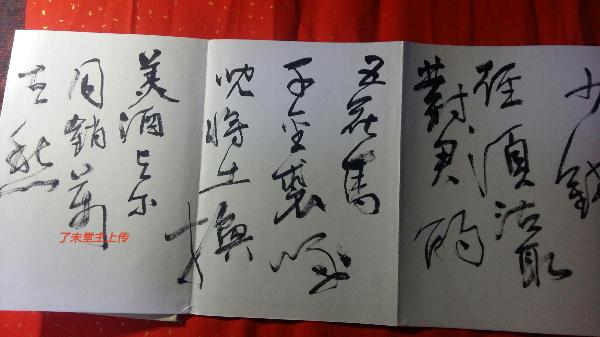 少錢
径須沽取
對君酌
五花馬
千金裘呼
兒将出換
美酒与尔
同銷萬
古愁
了未堂主上传